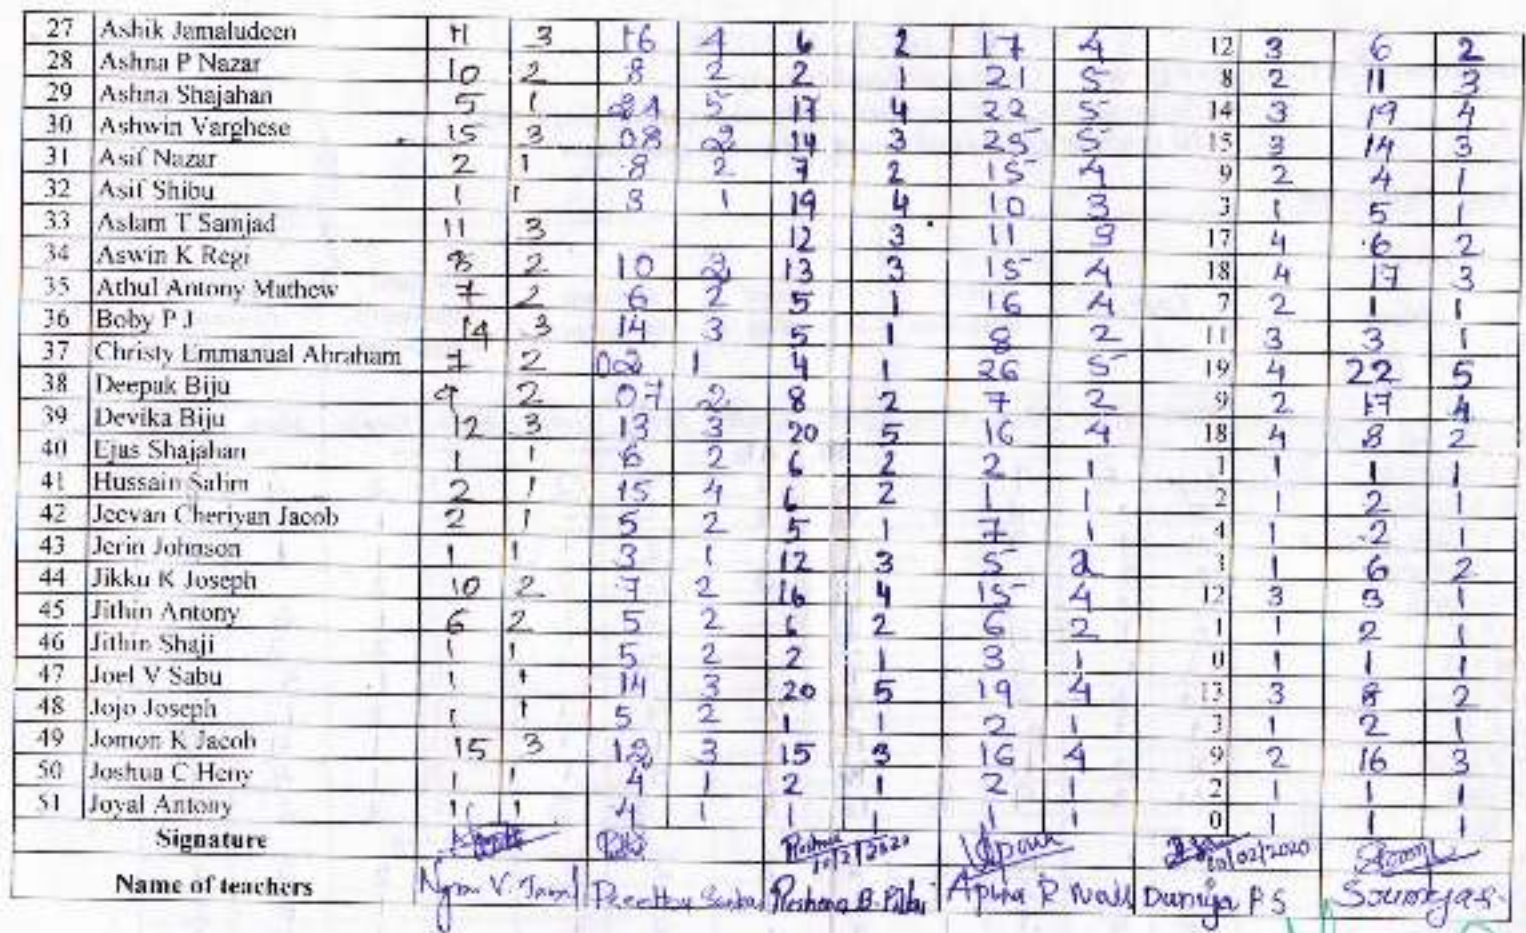 27 Ashik Jamaludeen 11 3 16 4 6 2 17 4 12 3 6 2
28 Ashna P Nazar 10 2 8 2 2 1 21 5 8 2 11 3
29 Ashna Shajahan 5 1 21 5 17 4 22 5 14 3 19 4
30 Ashwin Varghese 15 3 08 2 14 3 25 5 15 3 14 3
31 Asif Nazar 2 1 8 2 7 2 15 4 9 2 4 1
32 Asif Shibu 1 1 3 1 19 4 10 3 3 1 5 1
33 Aslam T Samjad 11 3 12 3 11 3 17 4 6 2
34 Aswin K Regi 8 2 10 2 13 3 15 4 18 4 17 3
35 Athul Antony Mathew 7 2 6 2 5 1 16 4 7 2 1 1
36 Boby P J 14 3 14 3 5 1 8 2 11 3 3 1
37 Christy Emmanual Abraham 7 2 02 1 4 1 26 5 19 4 22 5
38 Deepak Biju 9 2 07 2 8 2 7 2 9 2 17 4
39 Devika Biju 12 3 13 3 20 5 16 4 18 4 8 2
40 Ejas Shajahan 1 1 6 2 6 2 2 1 1 1 1 1
41 Hussain Salim 2 1 15 4 6 2 1 1 2 1 2 1
42 Jeevan Cheriyan Jacob 2 1 5 2 5 1 7 1 4 1 2 1
43 Jerin Johnson 1 1 3 1 12 3 5 2 3 1 6 2
44 Jikku K Joseph 10 2 7 2 16 4 15 4 12 3 3 1
45 Jithin Antony 6 2 5 2 6 2 6 2 1 1 2 1
46 Jithin Shaji 1 1 5 2 2 1 3 1 0 1 1 1
47 Joel V Sabu 1 1 14 3 20 5 19 4 13 3 8 2
48 Jojo Joseph 1 1 5 2 1 1 2 1 3 1 2 1
49 Jomon K Jacob 15 3 12 3 15 3 16 4 9 2 16 3
50 Joshua C Heny 1 1 4 1 2 1 2 1 2 1 1 1
51 Joyal Antony 1 1 4 1 1 1 1 1 0 1 1 1
Signature 10/2/2020 10/02/2020
Name of teachers V. Jamal Roshna B. Pillai R Nair P S